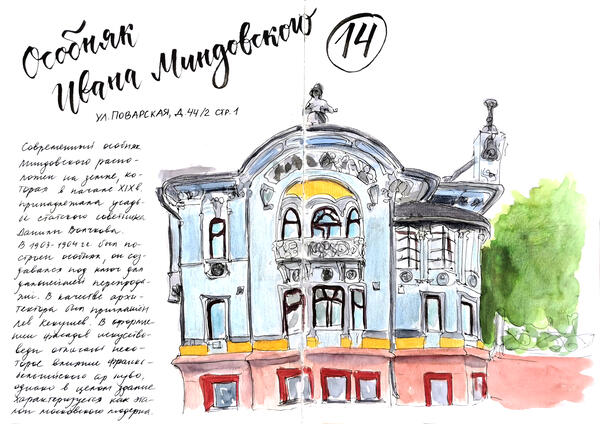 Особняк
Ивана Миндовского
14
ул. Поварская, д. 44/2 стр. 1
Современный особняк
Миндовского распо-
ложен на земле, ко-
торая в начале XIX в.
принадлежала усадь-
бе статского советника
Данилы Волчкова.
В 1903-1904 гг. был по-
строен особняк, он соз-
давался под ключ для
дальнейшей перепрода-
жи. В качестве архи-
тектора был приглашён
Лев Кекушев. В оформле-
нии фасадов искусство-
веды отмечают неко-
торое влияние франко-
бельгийского ар нуво,
однако в целом здание
характеризуется как эта-
лон московского модерна.